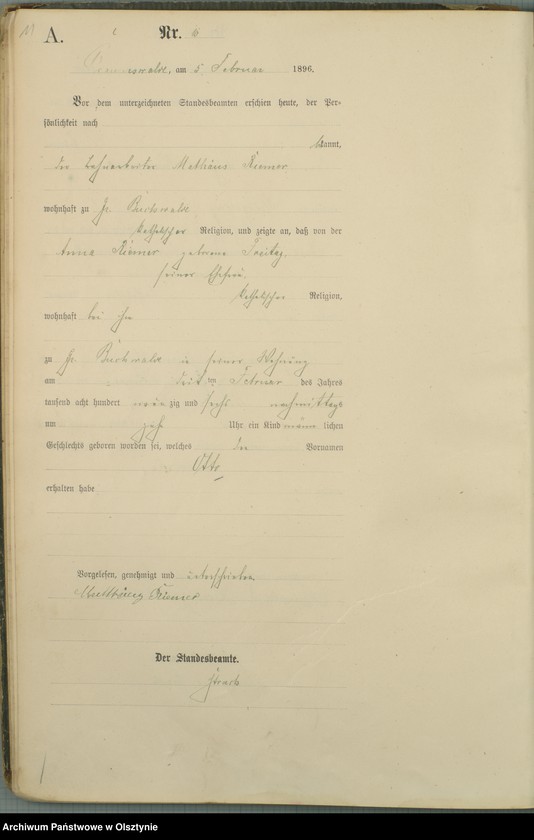 A.
Nr. 6
am 5. Februar 1896.
Vor dem unterzeichneten Standesbeamten erschien heute, der Per-
sönlichkeit nach
kannt,
der Mathäus Riemer
wohnhaft zu Gr. Buchwalde
katholischer Religion, und zeigte an, daß von der
Anna Riemer geborene
seiner Ehefrau
katholischer Religion,
wohnhaft bei ihm
zu Gr. Buchwalde in seiner Wohnung
am drei ten Februar des Jahres
tausend acht hundert neun zig und sechs nachmittags
um Uhr ein Kind männ lichen
Geschlechts geboren worden sei, welches den Vornamen
Otto
erhalten habe
Vorgelesen, genehmigt und unterschrieben
Riemer
Der Standesbeamte.
Archiwum Państwowe w Olsztynie